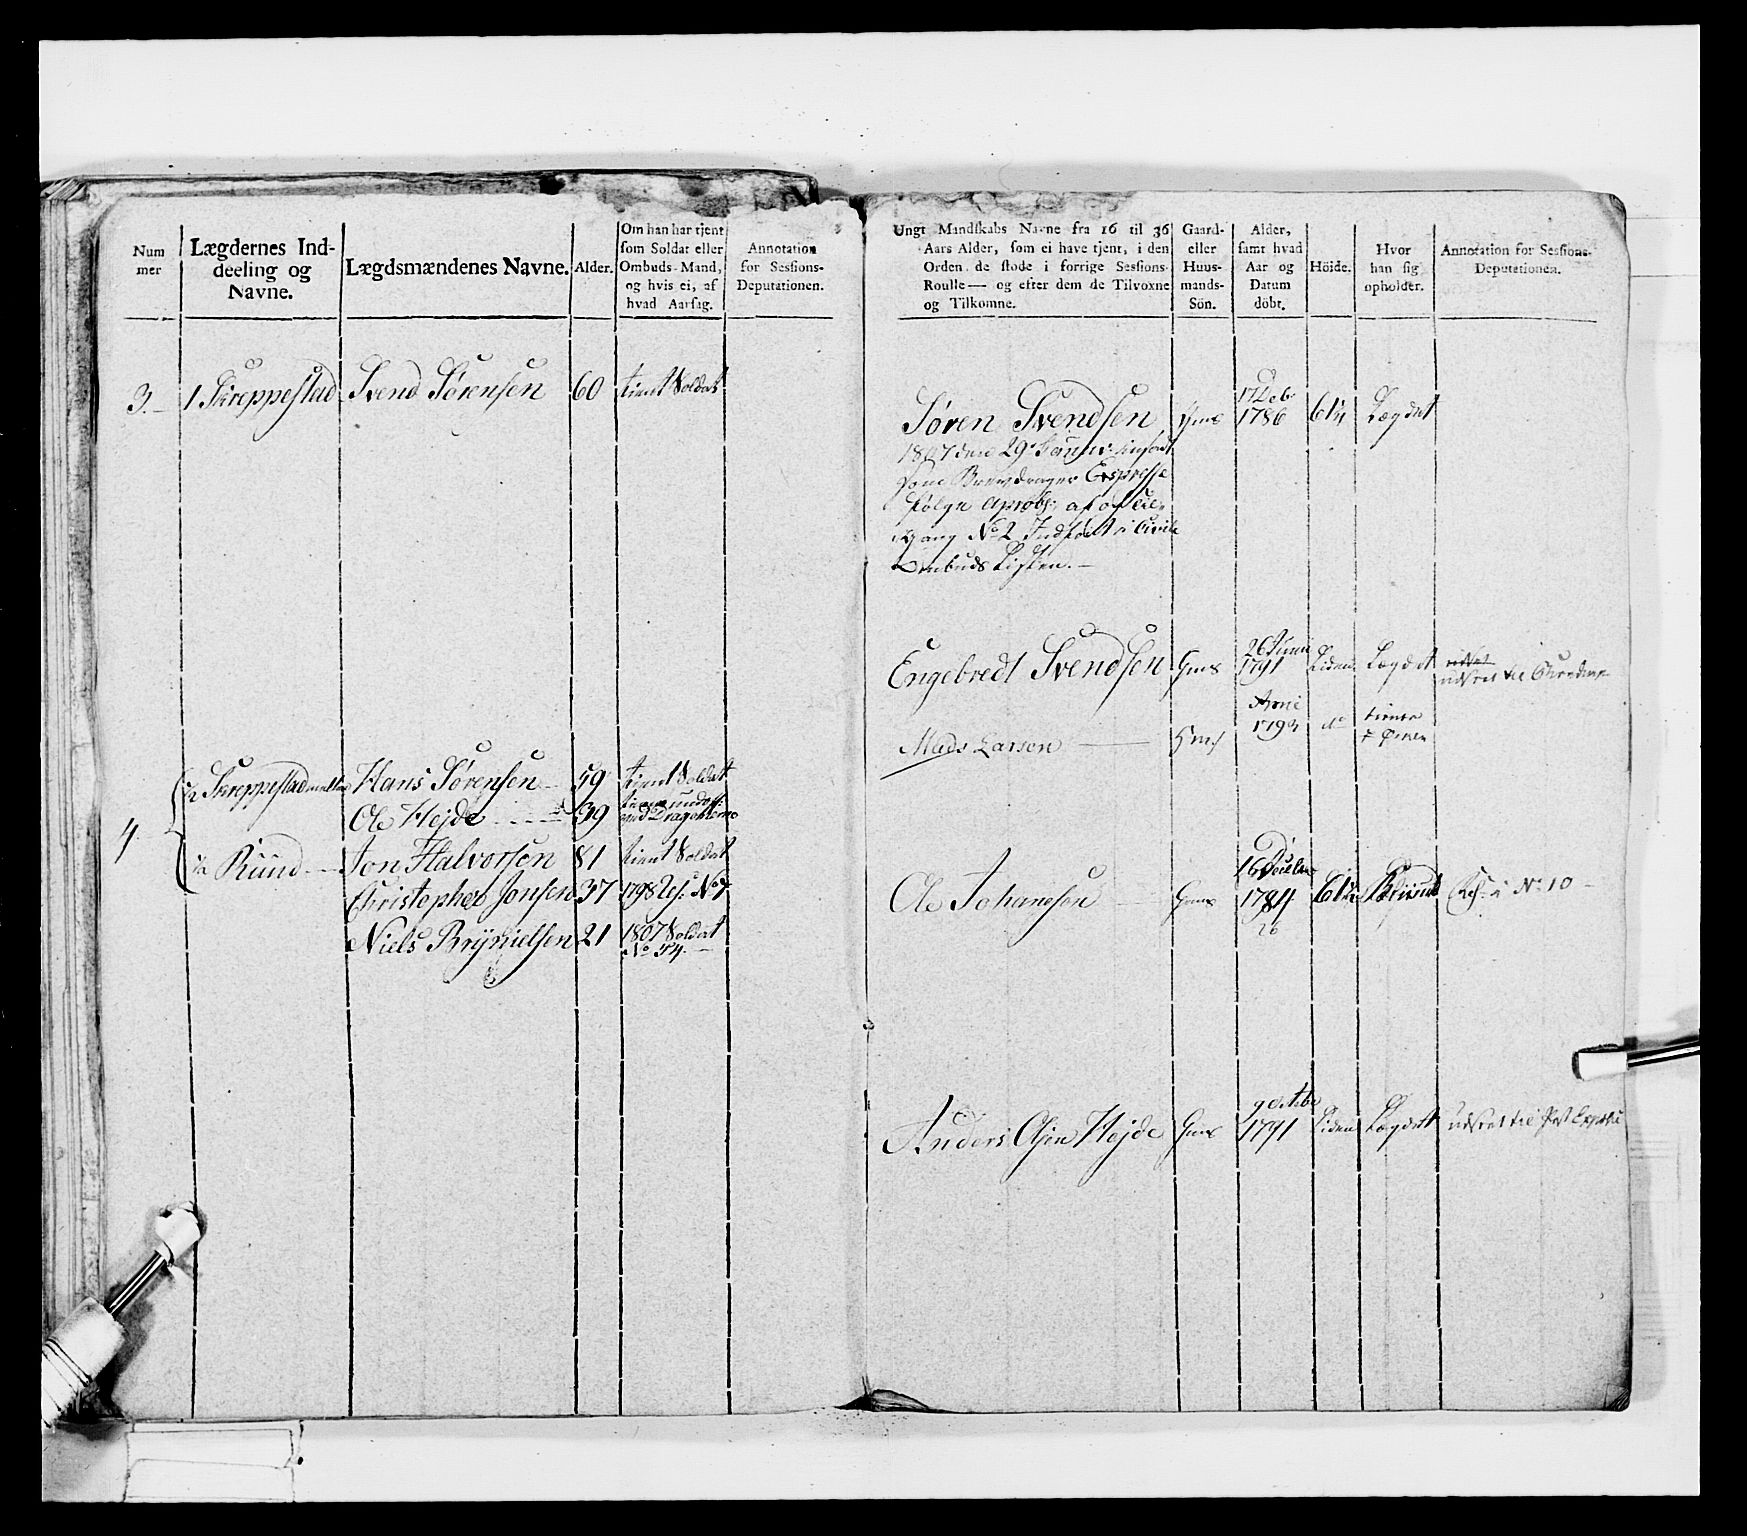 Num
mer
Lægdernes Ind-
deeling og
Navne.
Lægdsmændenes Navne.
Alder.
Om han har tjent
som Soldat eller
Ombuds-Mand,
og hvis ei, af
hvad Aarsag.
Annotation
for Sessions-
Deputationen.
3.- 1 Skreppestad Svend Sørensen 60 tient Soldat
4.
1/2 Skreppestad Hans Sørensen 59 tient Soldat
Ole Hejde 39
1/2 Ruud Jon Halvorsen 81 tient Soldat
Christopher Jonsen 37 1798 No 7
Niels Brynielsen 21 1807 Soldat
No 54.
Ungt Mandskabs Navne fra 16 til 36
Aars Alder, som ei have tjent, i den
Orden de stode i forrige Sessions-
Roulle — og efter dem de Tilvoxne
og Tilkomne.
Gaard-
eller
Huus-
mands-
Sön.
Alder,
samt hvad
Aar og
Datum
döbt.
Höide.
Hvor
han sig
opholder.
Annotation for Sessions-
Deputationen.
Søren Svendsen Gms 1786 Lægdet
1807 den 29
som Brevdrager Expresse
følge af
gang No 2 Indført i Civile
Ombuds Listen.-
26 Junii
Engebredt Svendsen Gms 1791 Liden Lægdet
udset til
Mads Larsen 1793 do tiener
16
Ole Johanesen Gms 1784 i No 10
26
9 octobr
Anders Olsen Hejde Gms 1791 Liden Lægdet udset til Post